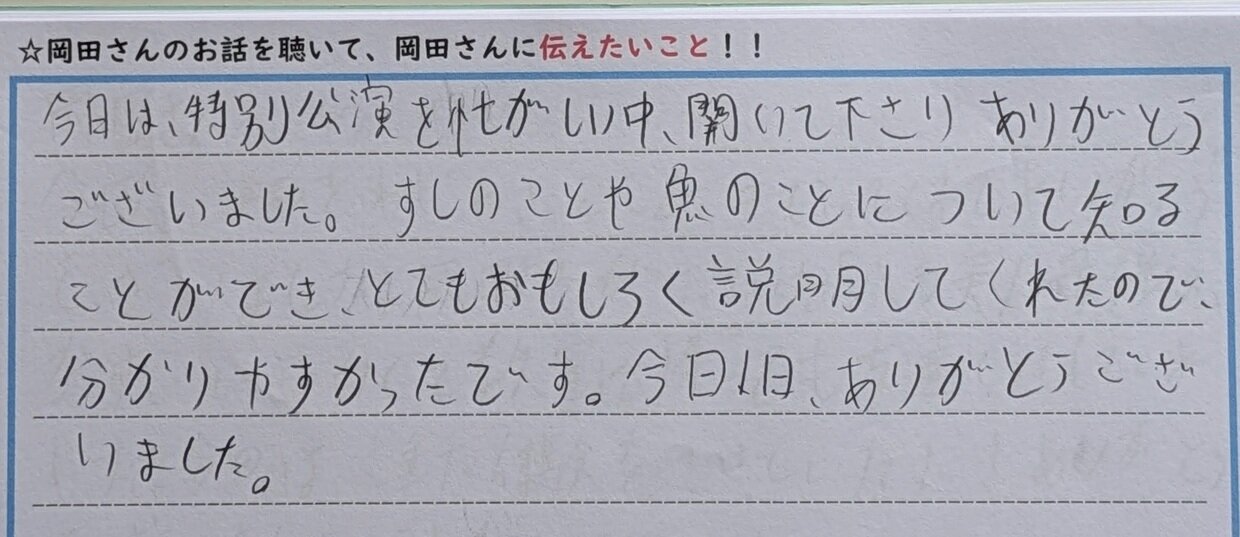 ☆岡田さんのお話を聴いて、岡田さんに伝えたいこと！！
今日は、特別公演を忙がしい中、開いて下さりありがとう
ございました。すしのことや魚のことについて知る
ことができ、とてもおもしろく説明してくれたので、
分かりやすかったです。今日1日、ありがとうござ
いました。